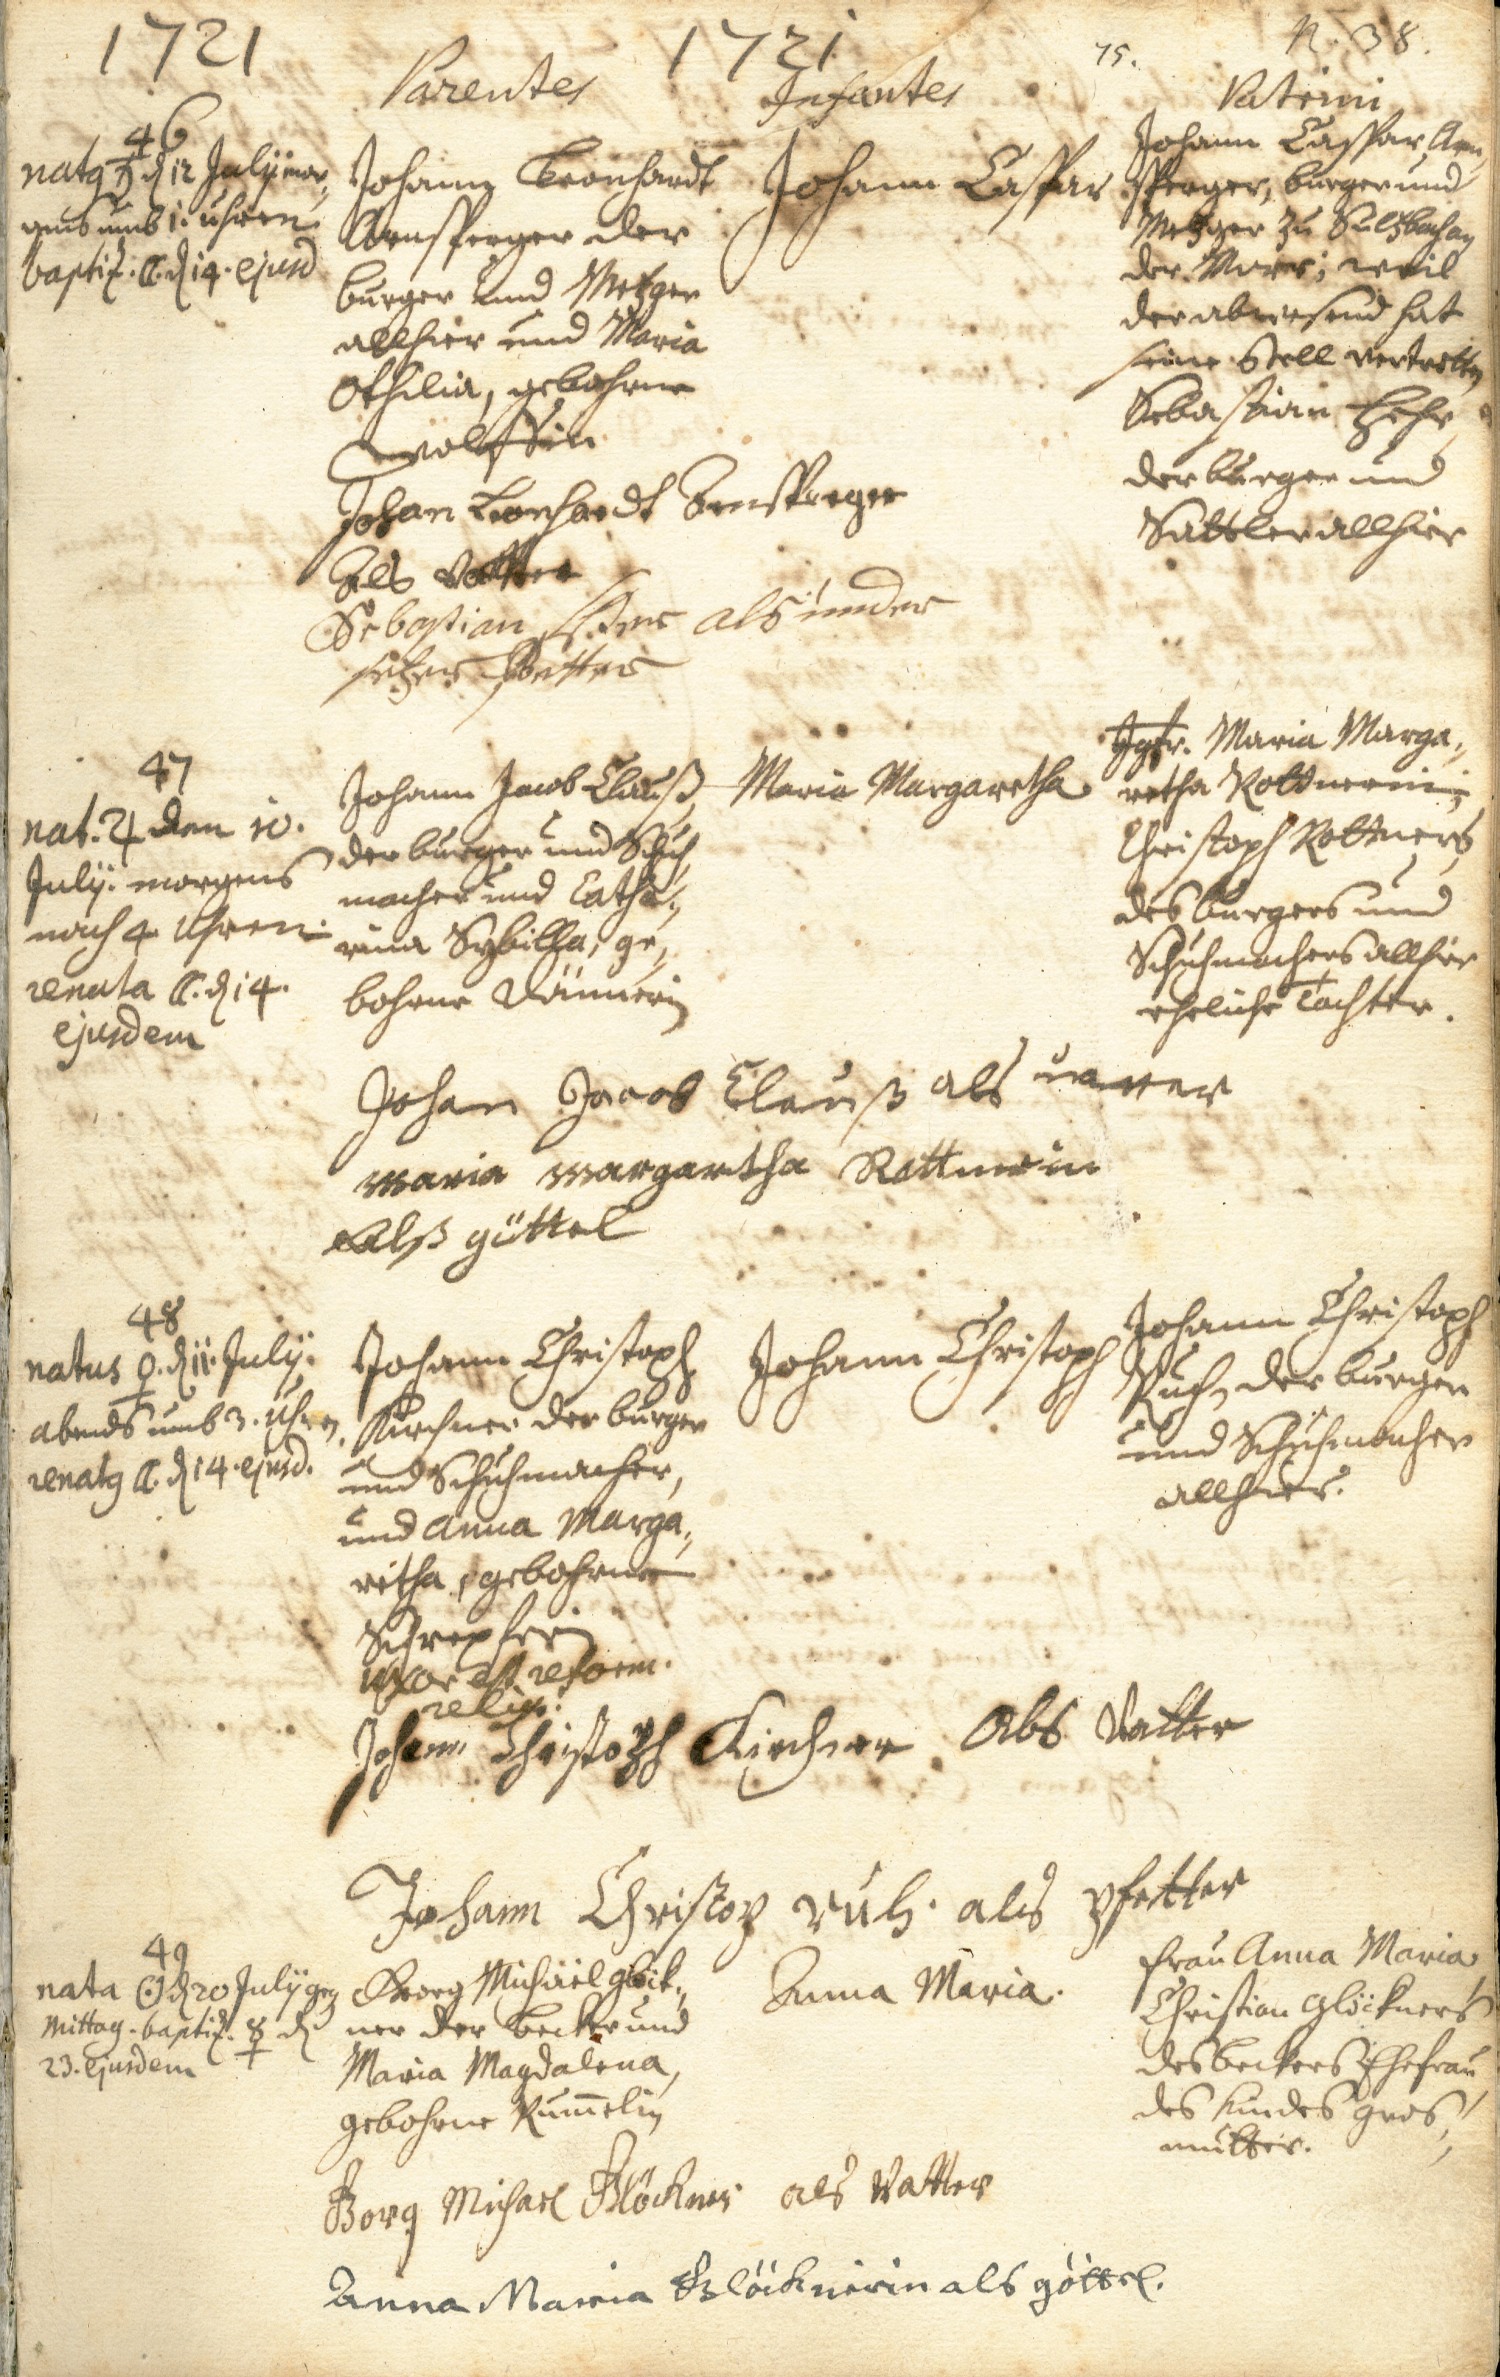 1721
1721
75.
N. 38.
Parentes
Infantes
Paterini
46
natg ♄ d 12 Julÿ mor„
gens umb 1. uhren.
baptiz. ☾. d 14. ejusd
Johann Leonhardt
Arnsperger der
burger und Metzger
allhier und Maria
Othilia, gebohrne
Wolffin
Johann Caspar
Johann Caspar Arn„
sperger, burger und
Metzger zu Sultzbach an
der Murr; weil
der abwesend hat
seine Stell vertretten
Sebastian
der burger und
Sattler allhier
Johan Leonhardt Arnsperger
Als Vatter
Sebastian als under
setzer Pfetter
47
nat. ♃ den 10.
Julÿ. morgens
nach 4 Uhren.
renata ☾. d 14.
ejusdem
Johann Jacob Clauß
der burger und Schuh„
macher und Catha„
rina Sybilla, ge„
bohrne
Maria Margaretha
Jgfr. Maria Marga„
retha Rottnerin,
Christoph Rottners,
des burgers und
Schuhmachers allhier
eheliche Tochter.
Johan Jacob Clauß als vatter
Maria Margartha Rottnerin
Alß göttel
48
natus ♀. d 11. Julÿ.
abends umb 3. Uhren,
renatg ☾. d 14. ejusd.
Johann Christoph
Kirchner der burger
und Schuhmacher,
und Anna Marga„
retha, gebohrne
Schrepferin
Uxor est reform.
relig.
Johann Christoph
Johann Christoph
Ruh, der burger
und Schuhmacher
allhier.
Johann Christoph Kirchner Als Vatter
Johann Christop Ruh. als pfetter
49
nata ☉ d 20 Julÿ gen
Mittag. baptiz. ☿ d
23. ejusdem
Georg Michäel Glöck„
ner der becker und
Maria Magdalena,
gebohrne Rum̅elin
Anna Maria.
Frau Anna Maria
Christian Glöckners
des beckers Ehefrau
des Kindes gros„
mutter.
Gorg Michael Glöckner als Vatter
Anna Maria Glöcknerin als göttel.